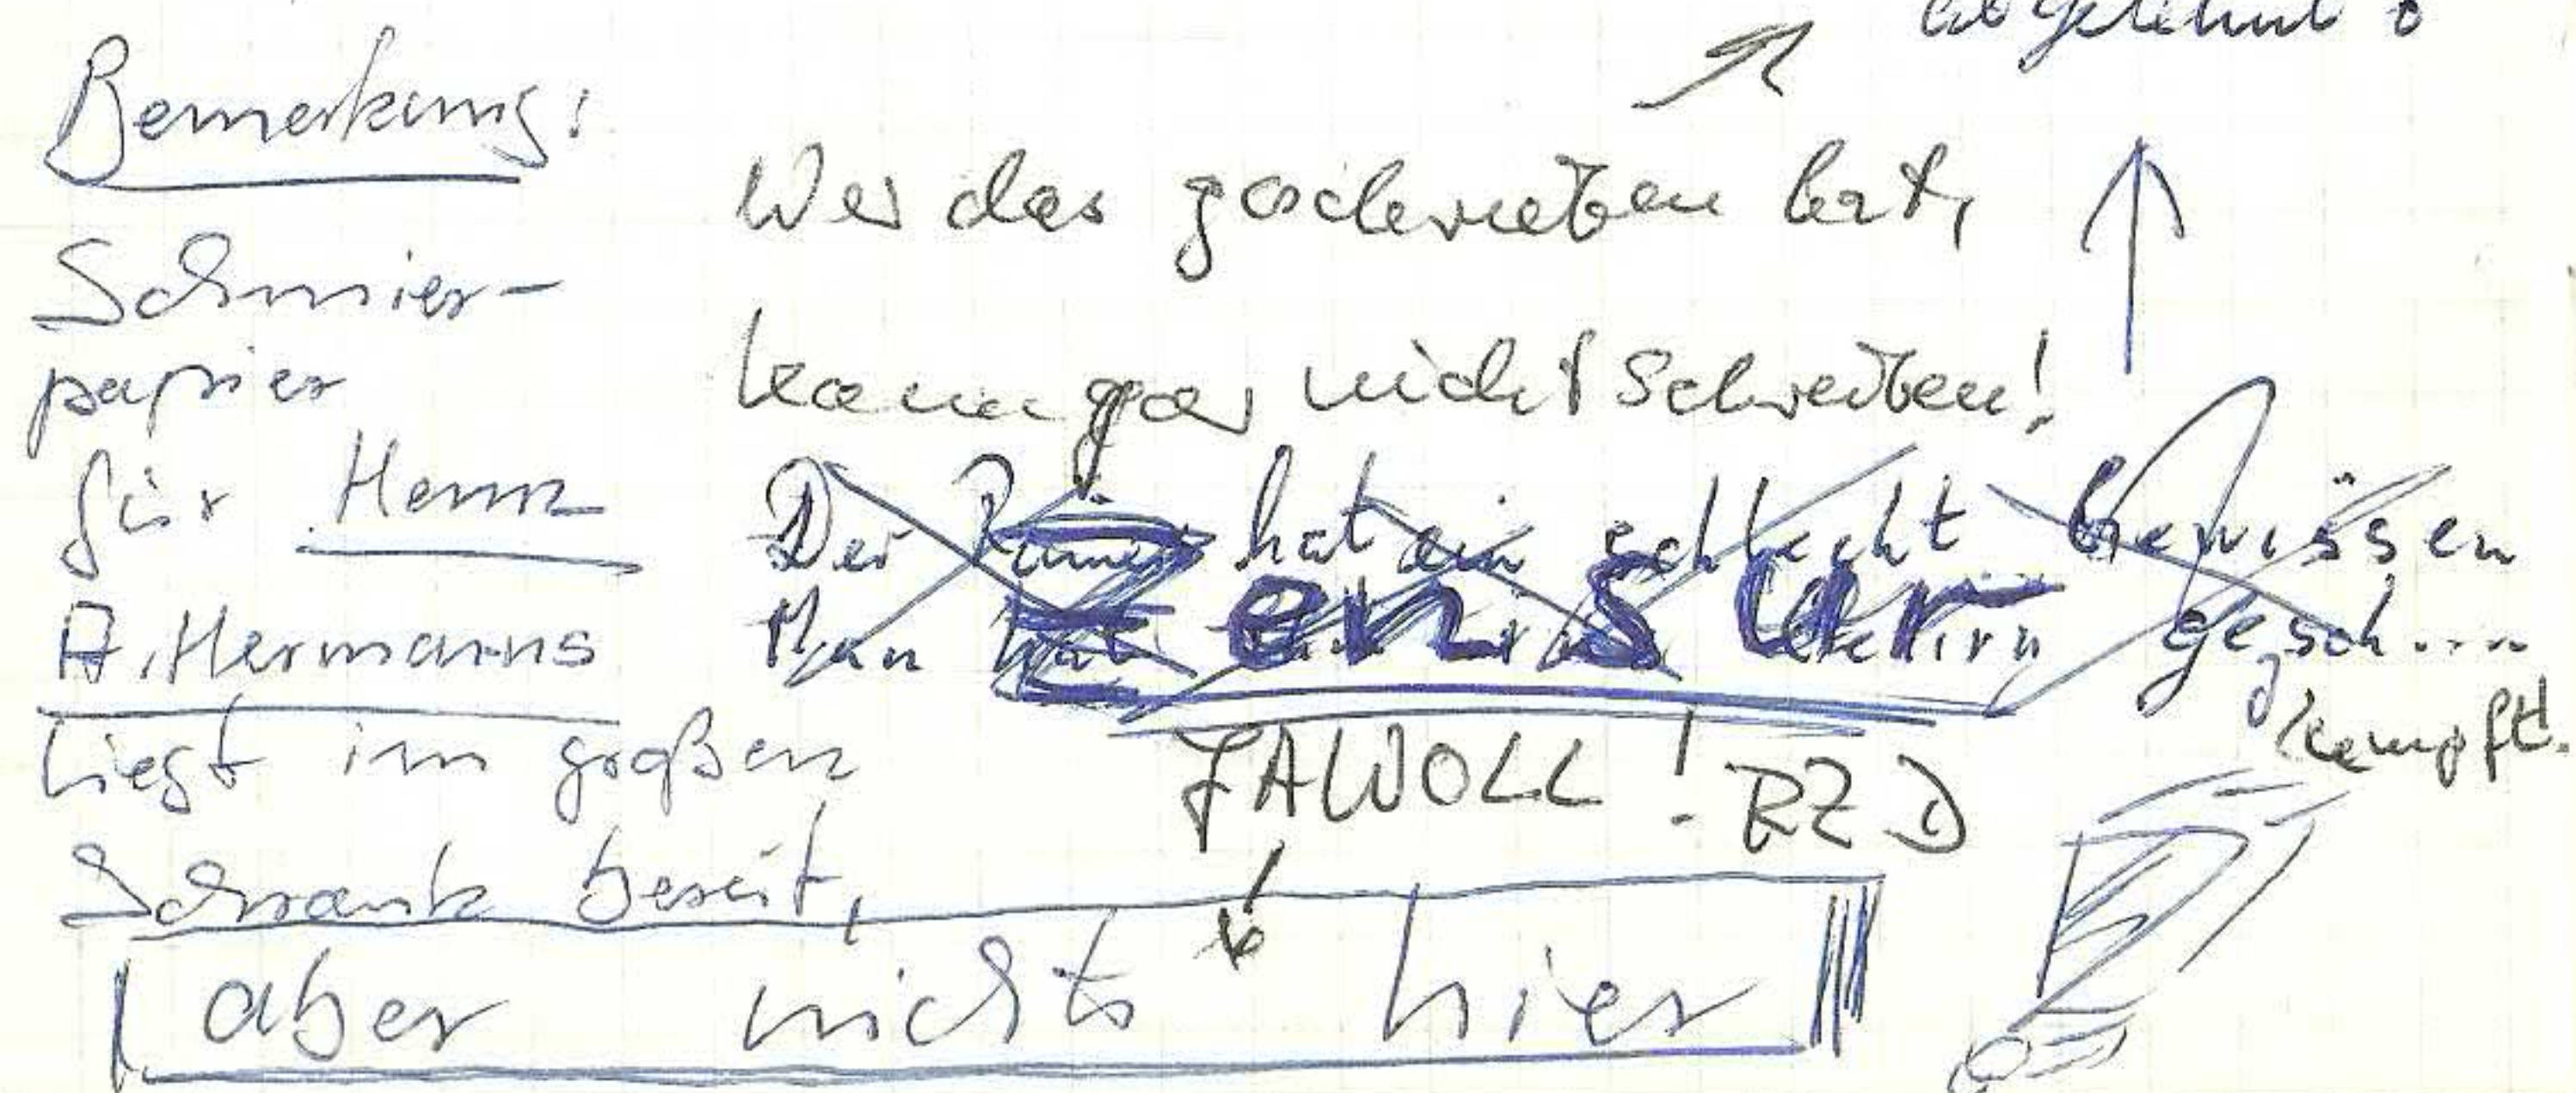 abgelehnt
Bemerkung:
Schmier-
papier
für Herrn
A. Hermanns
liegt im großen
Schrank bereit,
aber nichts hier
Wer das geschrieben hat,
kann gar nicht schreiben!
Der hat ein schlecht Gewissen
Man gesch....
Zensur
kempft.
JAWOLL! RZD